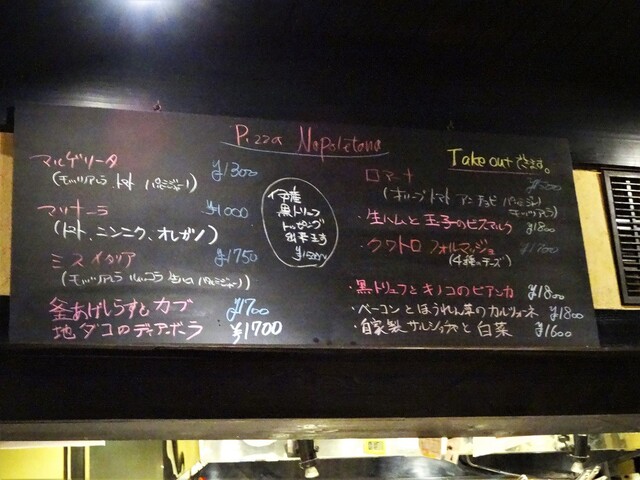 Pizza Napoletana
Take out できます。
マルゲリータ ¥1300
(モッツァレラ トマト パルミジャーノ)
マリナーラ ¥1000
(トマト、ニンニク、オレガノ)
ミスイタリア ¥1750
(モッツァレラ ルッコラ 生ハム パルミジャーノ)
釜あげしらすとカブ ¥1700
地ダコのディアボラ ¥1700
伊産
黒トリュフ
トッピング
出来ます
ロマーナ
(オリーブ トマト アンチョビ パルミジャーノ
モッツァレラ)
・生ハムと玉子のビスマルク ¥1800
・クワトロ フォルマッジョ ¥1700
(4種のチーズ)
・黒トリュフとキノコのビアンカ ¥1800
・ベーコンとほうれん草のカルツォーネ ¥1800
・自家製サルシッチャと白菜 ¥1600